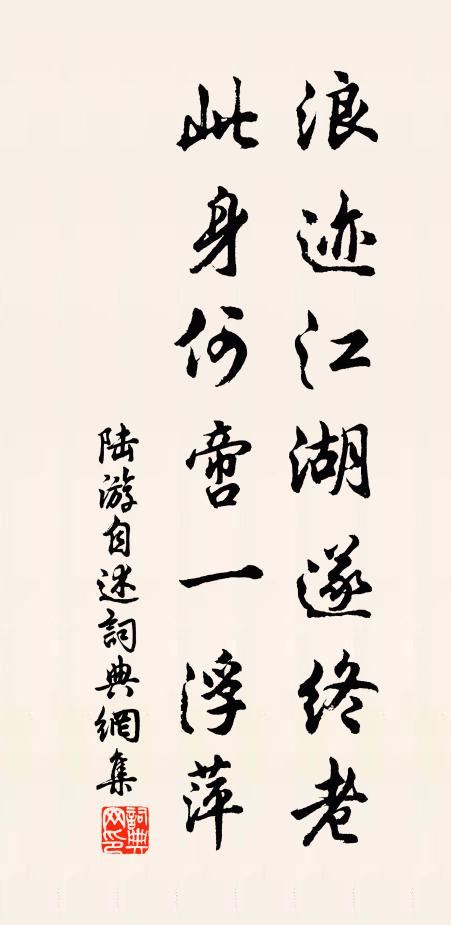 浪迹江湖遂终老
此身何啻一浮萍
陆游自述詞典網集
詞典網印